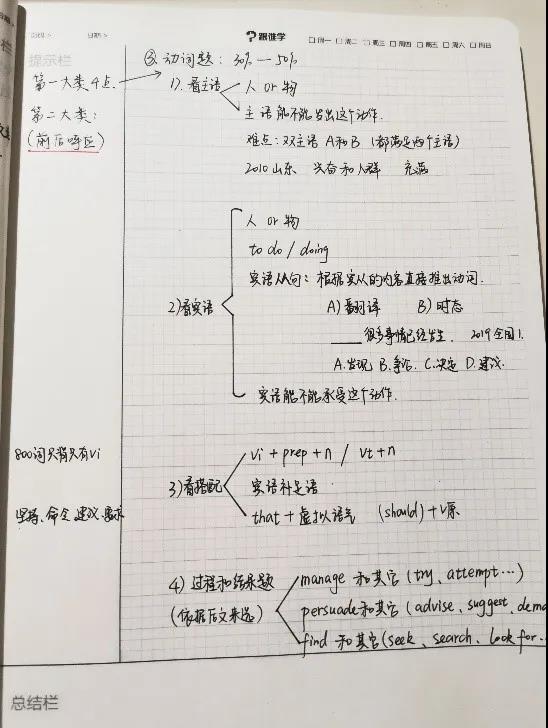 跟谁学
周一 周二 周三 周四 周五 周六 周日
提示栏
③ 动词题：30%—50%
第一大类4点
1). 看主语
人 or 物
主语能不能发出这个动作.
第二大类：
(前后呼应)
难点：双主语 A和B (都满足两个主语)
2010山东 兴奋和人群 充满
人 or 物
to do / doing
宾语从句：根据宾从的内容直接推出动词.
2)看宾语
A)翻译 B)时态
____很多事情已经发生. 2019全国1.
A.发现 B.争论 C.决定 D.建议.
宾语能不能承受这个动作.
800词只背只有vi
vi + prep + n / vt + n
3)看搭配
宾语补足语
坚持、命令、建议、要求
that + 虚拟语气 (should) + v原
4) 过程和结果题
manage 和其它 (try、attempt…)
(依据后文来选)
persuade 和其它 (advise、suggest、dema
find 和其它 (seek、search、look for…
总结栏